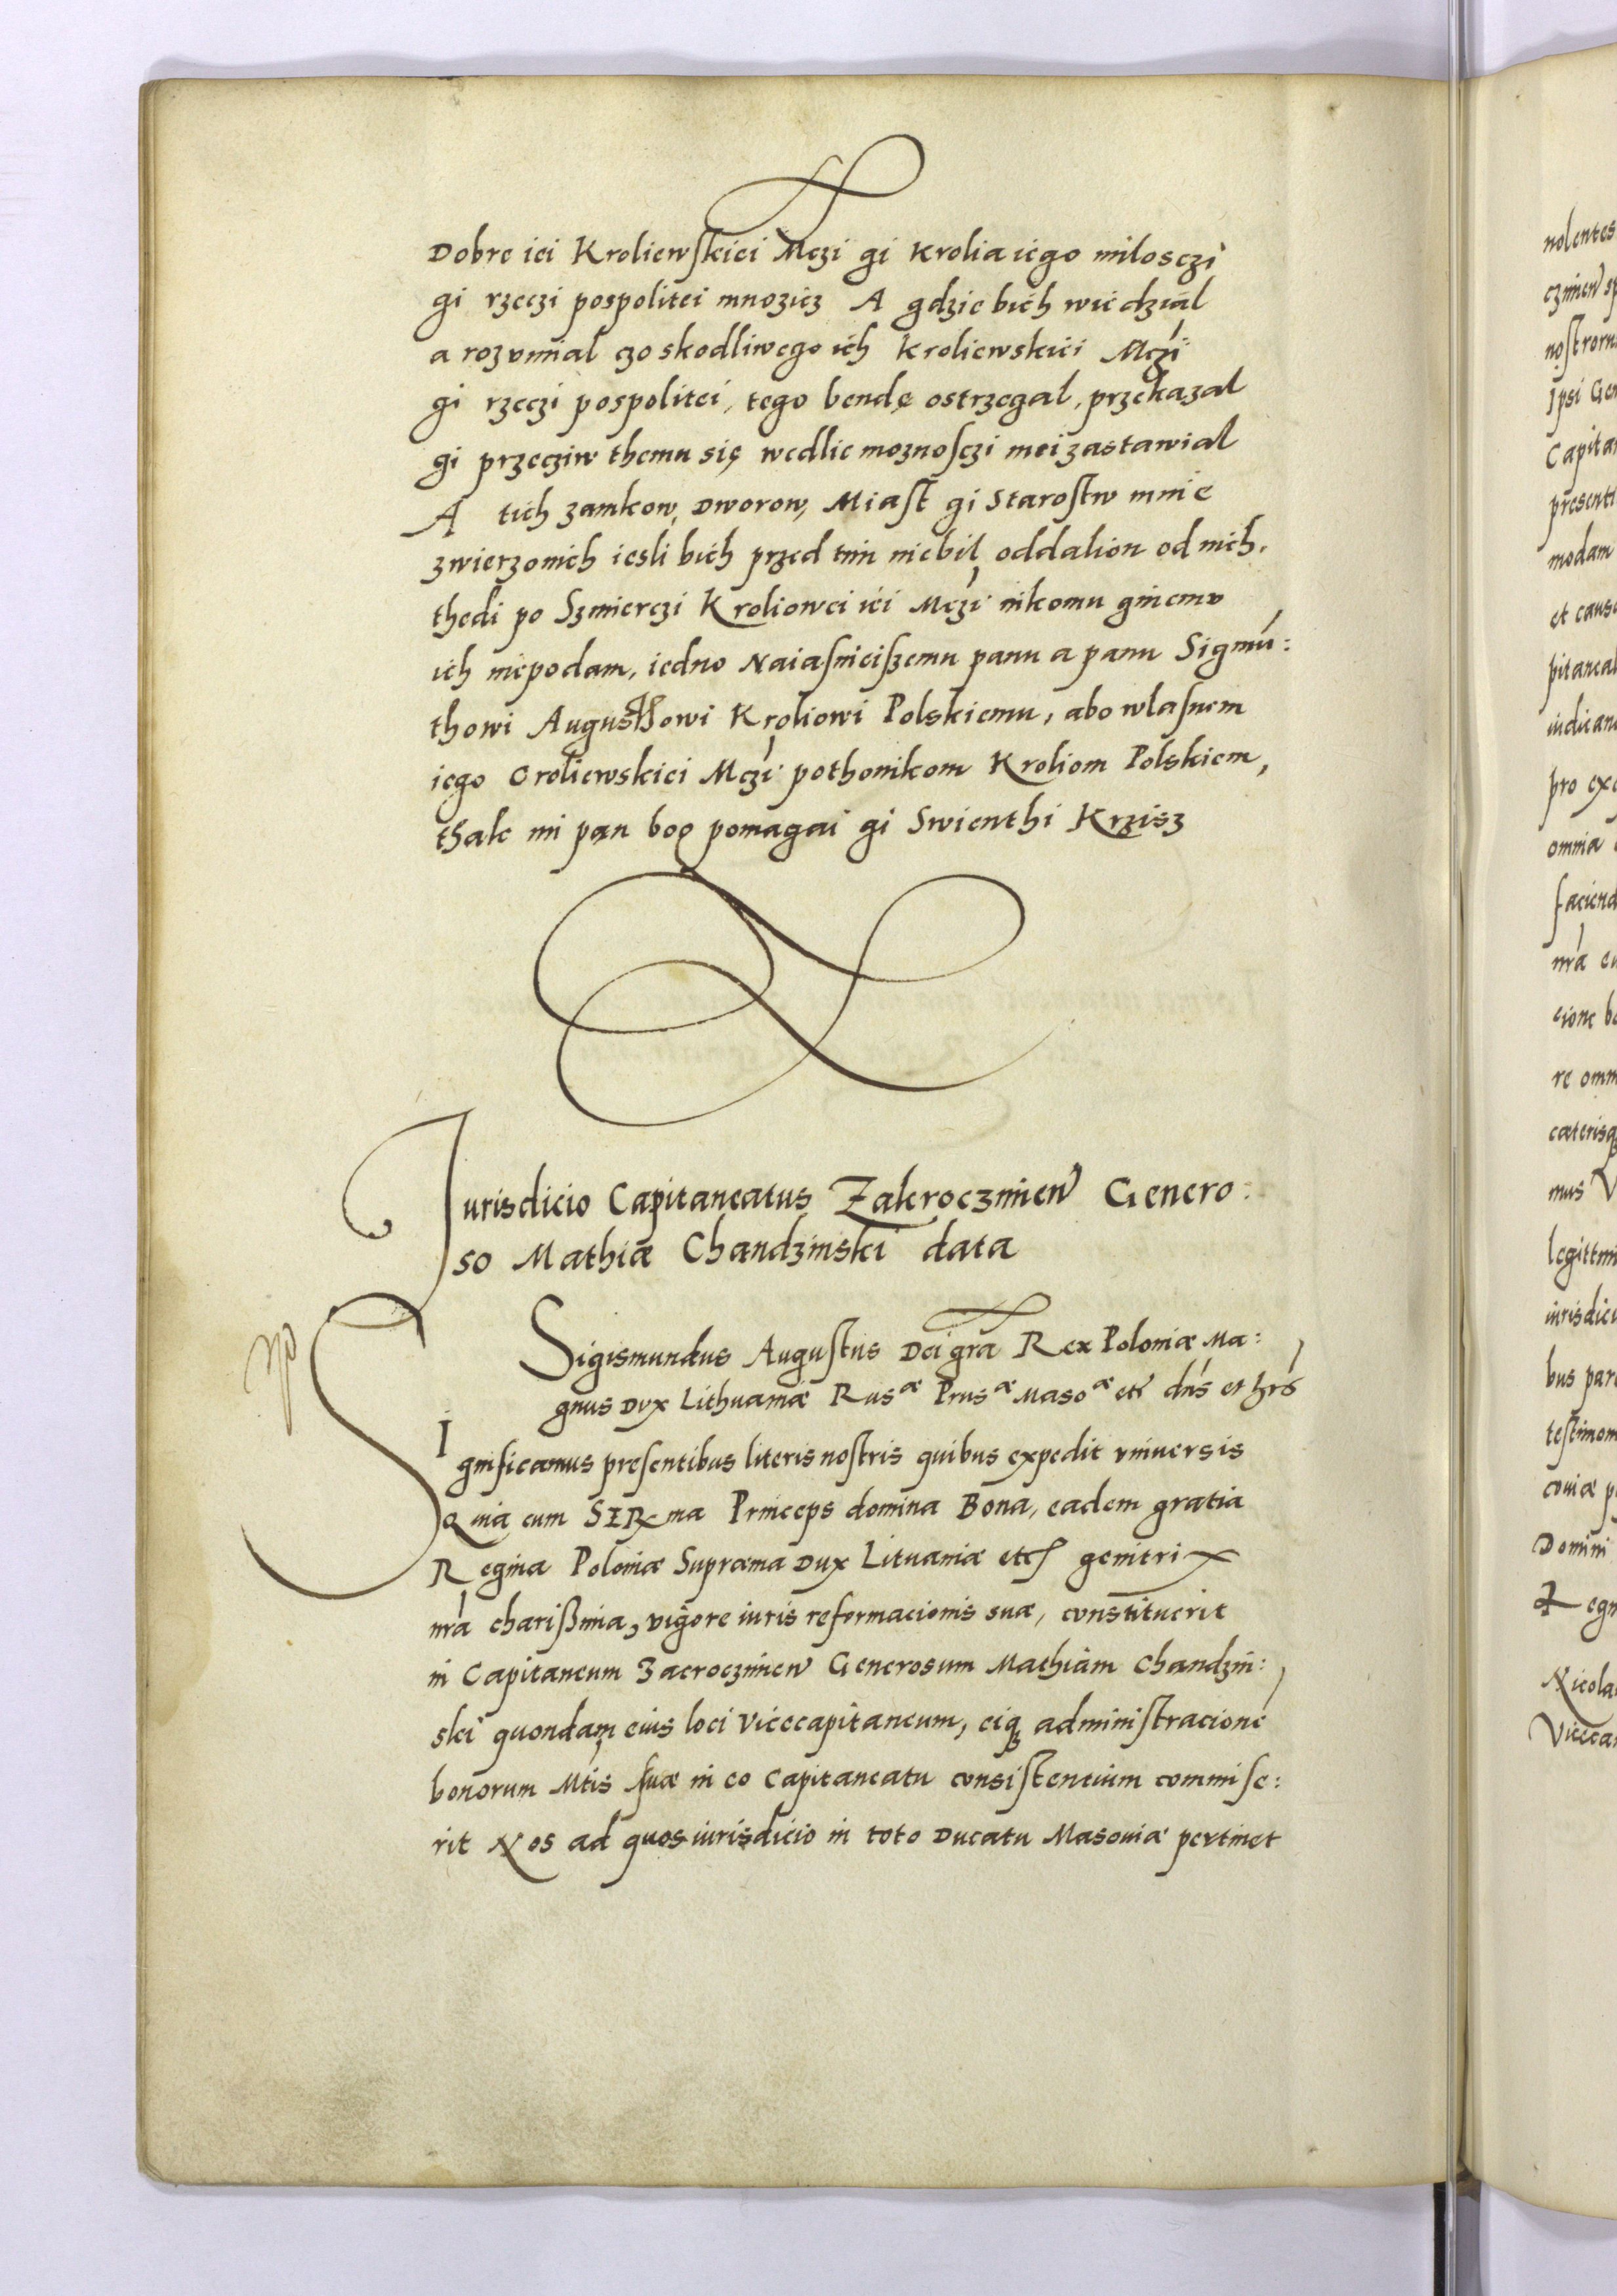 Dobre iei Kroliewskiei Mczi gi krolia iego milosczi
gi rzeczi pospolitei mnozicz A gdzie bich wiedzial
a rozumial czo skodliwego ich Kroliewskiei Mczi
gi rzeczi pospolitei, tego bende ostrzegal, przekazal
gi przecziw themu się wedlie moznosczi mei zastawial
A tich zamkow, Dworow, Miast gi Starostw mnie
zwierzonich iesli bich przed tim niebil oddalion od nich,
thedi po Szmierczi Kroliowei iei Mczi nikomu ginemv
ich niepodam, iedno Naiasnieißemu panu a panu Sigmu:
thowi Augusthowi Kroliowi Polskiemu, abo wlasnem
iego Croliewskiei Mczi pothomkom Kroliom Polskiem,
thak mi pan bog pomagai gi Swienthi Krzisz
Iurisdicio Capitaneatus Zakroczimen Genero:
so Mathiæ Chandzinski data
Sigismundus Augustus Dei gra Rex Poloniæ Ma:
gnus Dux Lithuaniæ Rusæ Prusæ Masoæ etc dns et hrs
SIgnificamus presentibus literis nostris quibus expedit vniversis
Quia cum SERma Princeps domina Bona, eadem gratia
Regina Poloniæ Supræma Dux Lituaniæ etc genitrix
nra charißima, vigore iuris reformacionis suæ, constituerit
in Capitaneum Zacroczimen Generosum Mathiam Chandzin:
ski quondam eius loci Vicecapitaneum, eiq administracione
bonorum Mtis suæ in eo Capitaneatu consistentium commise:
rit Nos ad quos iurisdicio in toto Ducatu Masoviæ pertinet
nolentes
nostroru
Ipsi Gen
Capita
presenti
modam
et caus
pitaneal
iudican
pro exe
omnia
faciend
nra
cione bo
re omn
cæterisq
mus V
legittim
iurisdici
bus par
testimon
coviæ p
Domini
Regn
Nicola
Viceca